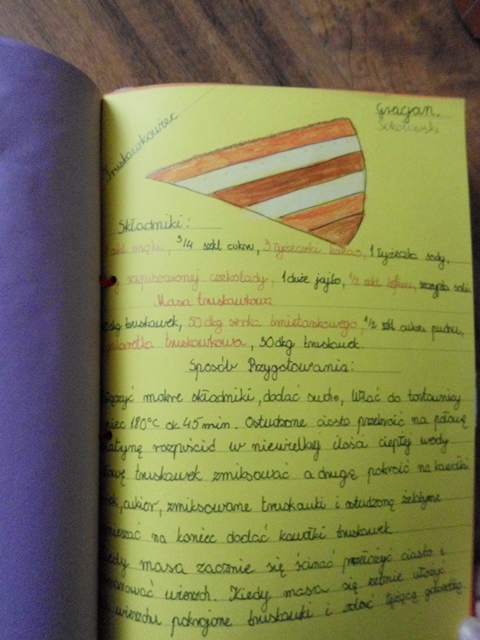 Truskawkowiec
Gracjan
Sokołowski
Składniki:
szkl mąki, 3/4 szkl cukru, 3 łyżeczki kakao, 1 łyżeczka sody,
rozpuszczonej czekolady, 1 duże jajko, 1/2 szkl kefiru, szczypta soli
Masa truskawkowa
dkg truskawek, 50 dkg serka śmietankowego, 1/2 szkl cukru pudru,
galaretka truskawkowa, 50dkg truskawek.
Sposób Przygotowania:
mokre składniki, dodać suche, wlać do tortownicy
piec 180°C ok 45 min. Ostudzone ciasto przekroić na połowę
żelatynę rozpuścić w niewielkiej ilości ciepłej wody
truskawek zmiksować a drugą pokroić na kawałki
cukier, zmiksowane truskawki i ostudzoną żelatynę
na koniec dodać kawałki truskawek
masa zacznie się ścinać przełożyć ciasto i
wierzch. Kiedy masa się zetnie ułożyć
wierzchu pokrojone truskawki i zalać tężącą galaretką